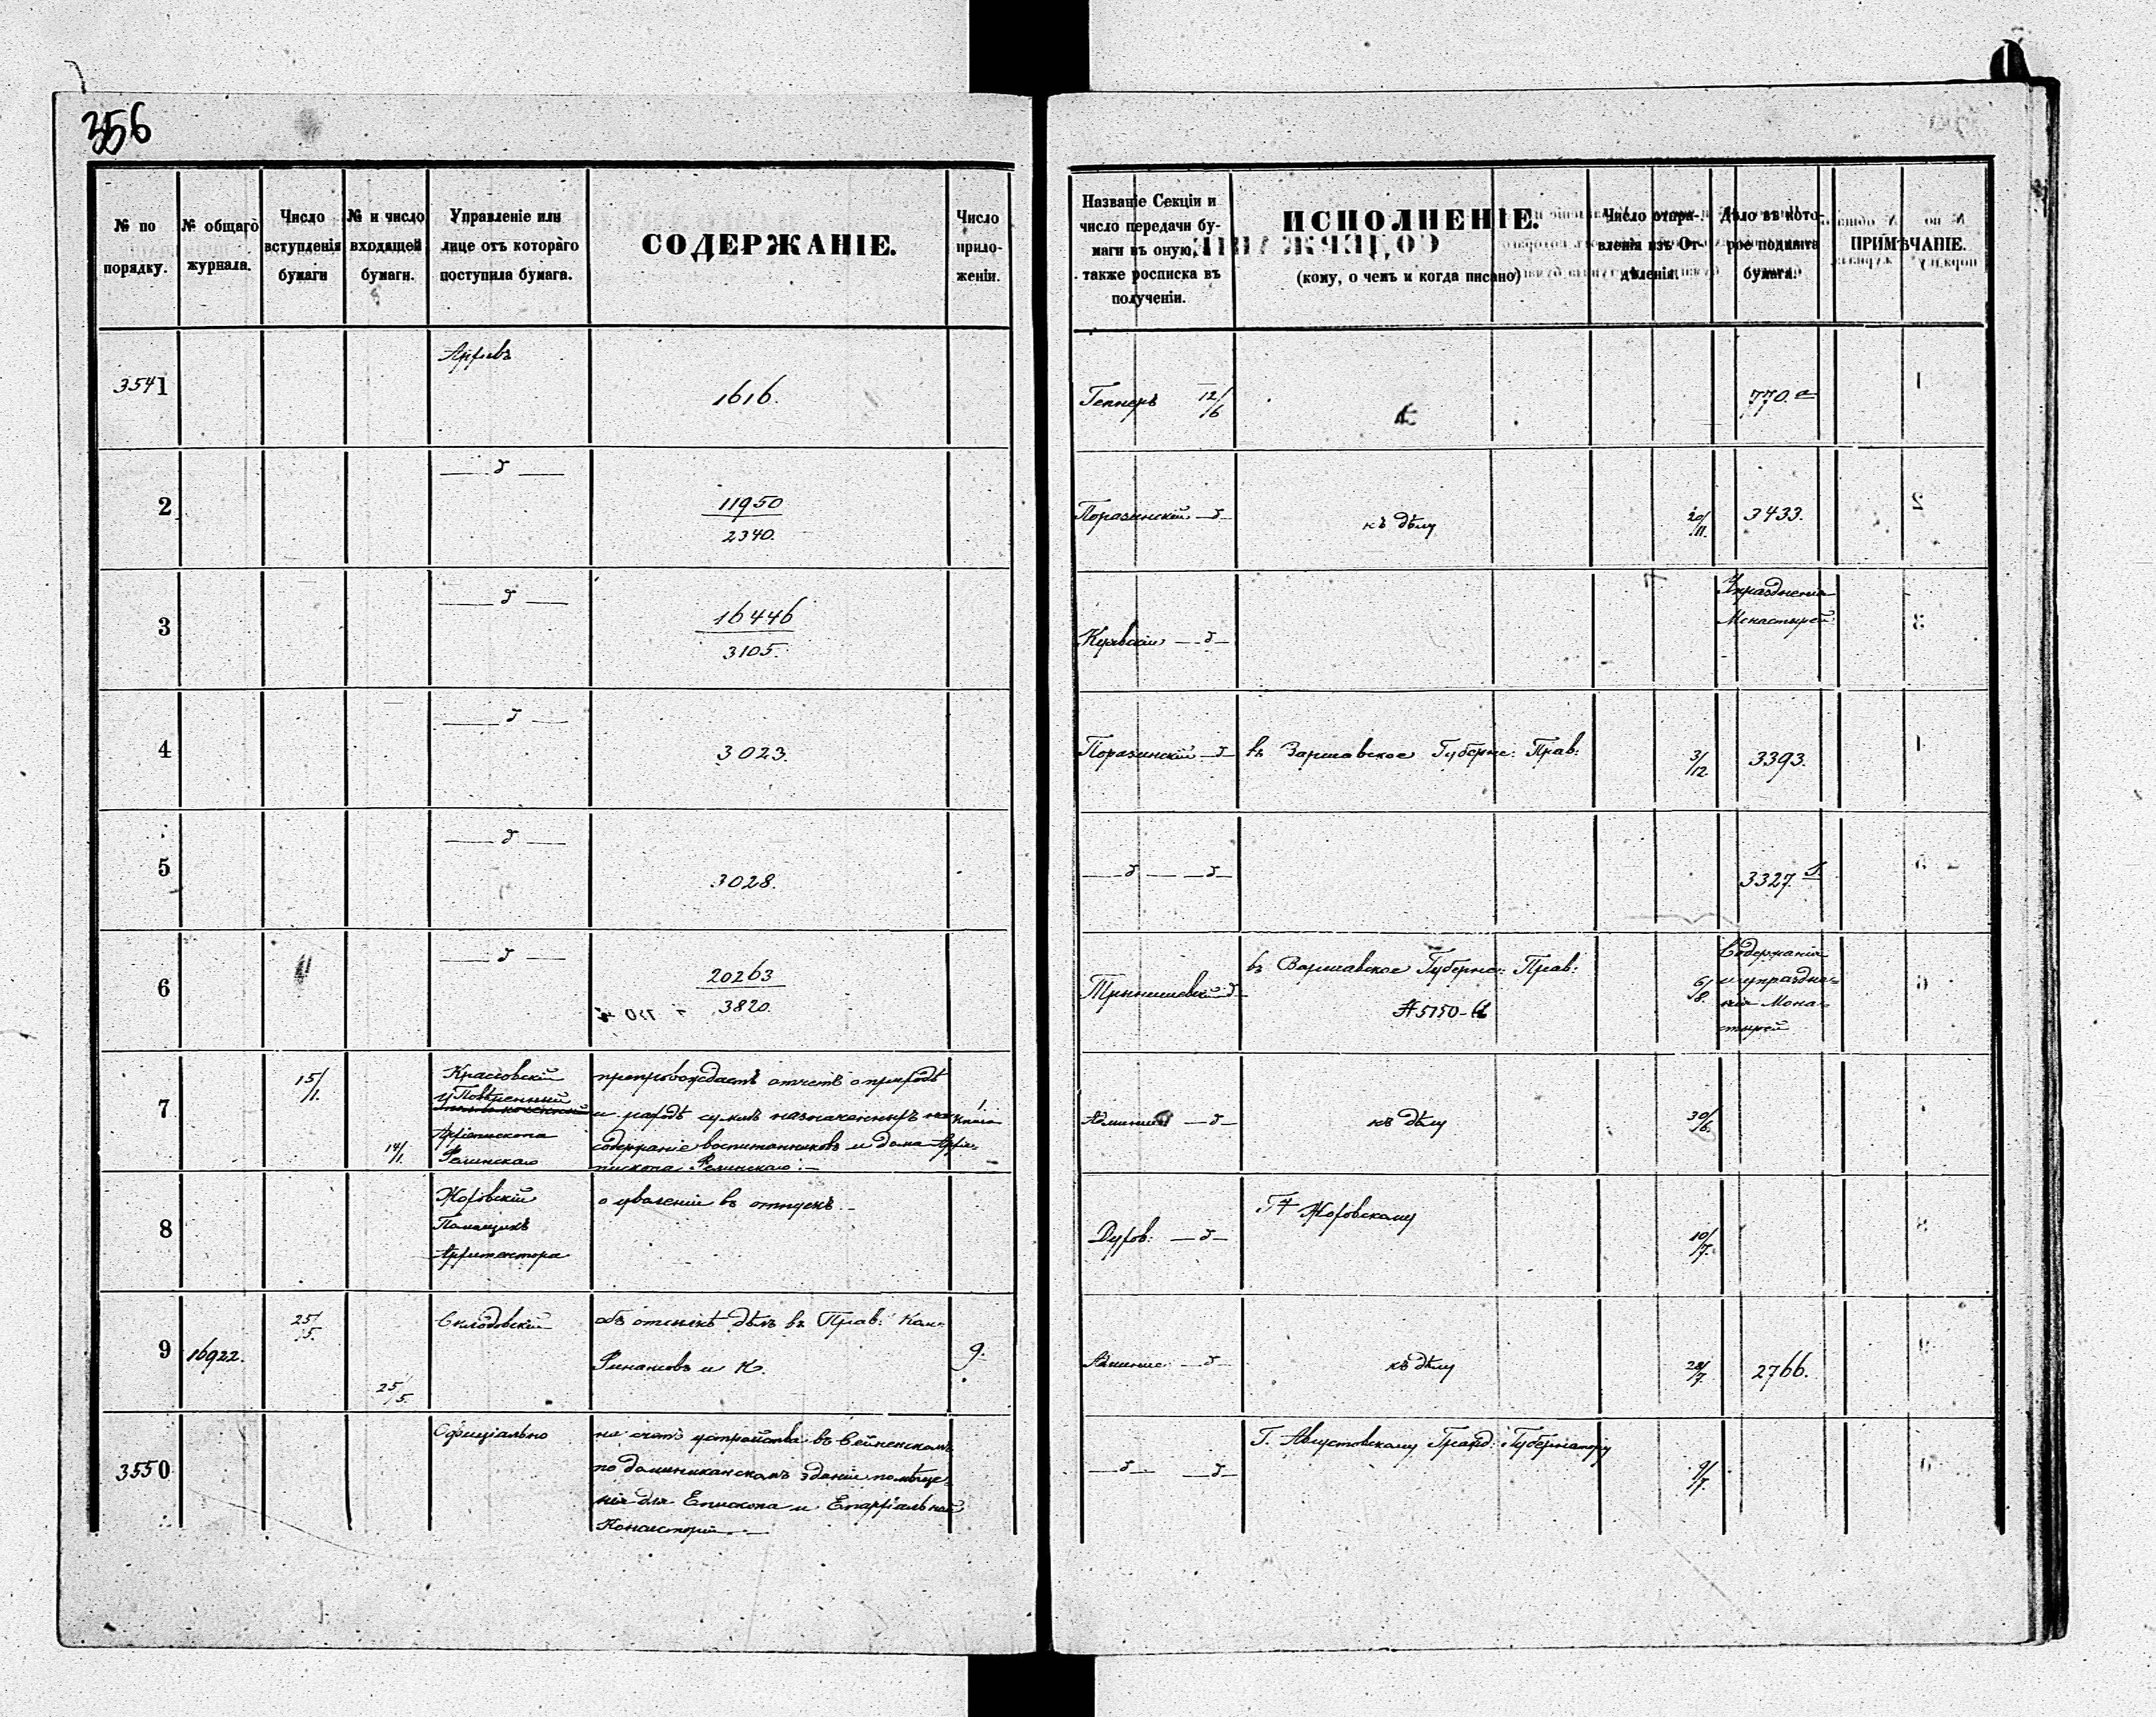 356
№ по порядку.
№ общаго журнала.
Число вступленія бумаги
№ и число входящей бумаги.
Управленіе или лице отъ котораго поступила бумага.
СОДЕРЖАНІЕ.
Число приложеніи.
Названіе Секціи и число передачи бумаги въ оную, также росписка въ полученіи.
ИСПОЛНЕНІЕ.
(кому, о чемъ и когда писано)
Число отправленія изъ Отдѣленія.
Дѣло въ которое подшита бумага.
ПРИМѢЧАНІЕ.
3541
Архивъ
1616.
12/6
770. а
2
11950
2340.
Поразинскій
къ дѣлу
20/11.
3433.
3
16446
3105.
Упраздненія
Монастырей
4
3023.
Поразинскій
въ Варшавское Губернс: Прав:
3/12.
3393.
5
3028.
3327.
6
20263
3820.
въ Варшавское Губернс: Прав:
5150
6/8.
Содержанія
и упраздне-
нія Мона-
стырей
7
15/1.
14/1.
Красовскій
Повѣренный
Архіепископа
Фелинскаго
препровождаетъ отчетъ о приходѣ
и расходѣ суммъ назначенныхъ на
содержаніе воспитанниковъ и дома Архіе-
пископа Фелинскаго.
1.
книга
къ дѣлу
30/6.
8
Жоховскій
Помощникъ
Архитектора
о уволеніи въ отпускъ
Духов:
Жоховскому
10/7.
9
16922.
25/5.
25/5.
Склодовскій
объ отсылкѣ дѣлъ въ Прав: Ком:
Финансовъ и К.
9.
къ дѣлу
28/7.
2766.
3550
Офиціально
на счетъ устройства въ Сейненскомъ
по доминиканскомъ зданіи помѣще-
нія для Епископа и Епархіальной
Консисторіи.
Г. Августовскому Гражд: Губернатору
9/7.